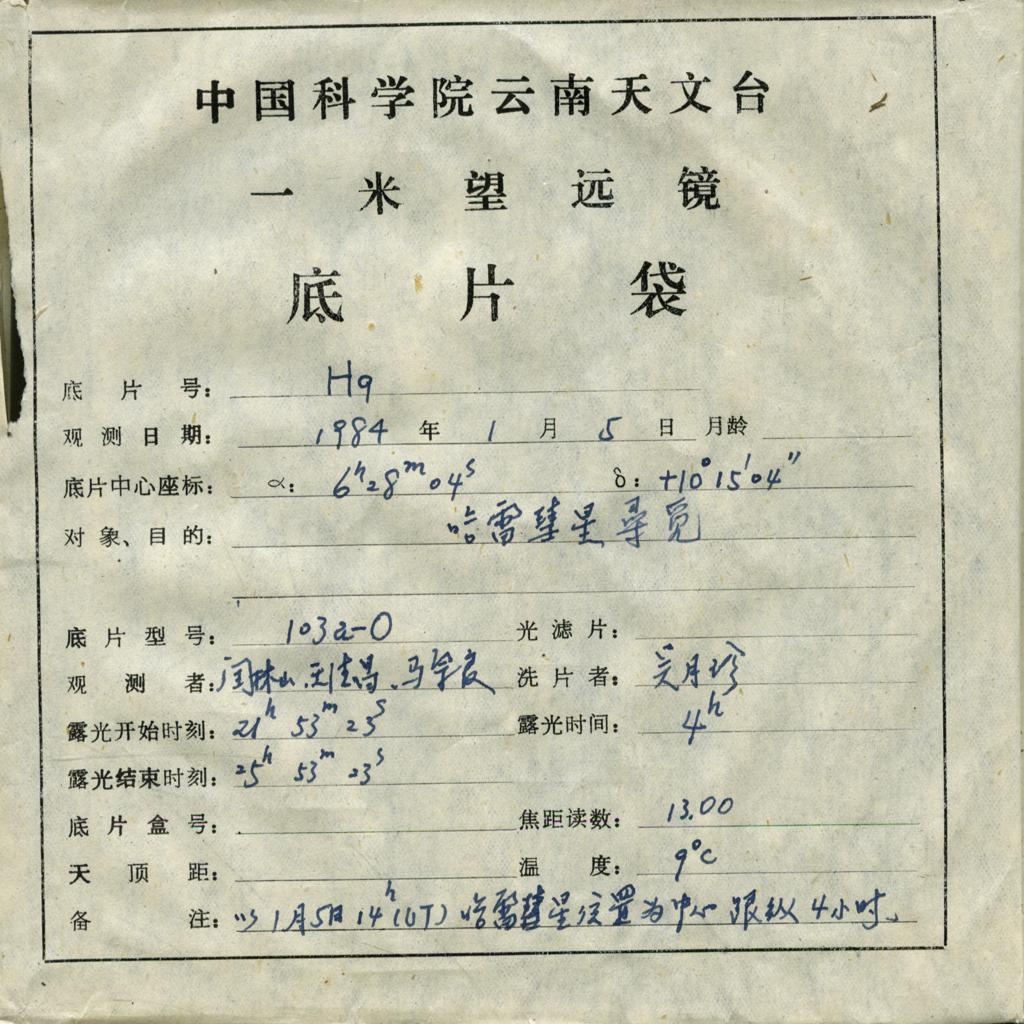 中国科学院云南天文台
一米望远镜
底片袋
底片号: H9
观测日期: 1984年1月5日 月龄
底片中心座标: α: 6h28m04s δ: +10°15′04″
对象、目的: 哈雷彗星寻觅
底片型号: 103a-O 光滤片:
观测者: 闫林山、王佳昌、马宇良 洗片者: 吴月珍
露光开始时刻: 21h 53m 23s 露光时间: 4h
露光结束时刻: 25h 53m 23s
底片盒号: 焦距读数: 13.00
天顶距: 温度: 9°C
备注: 以1月5日14h(UT)哈雷彗星位置为中心 跟纵4小时、